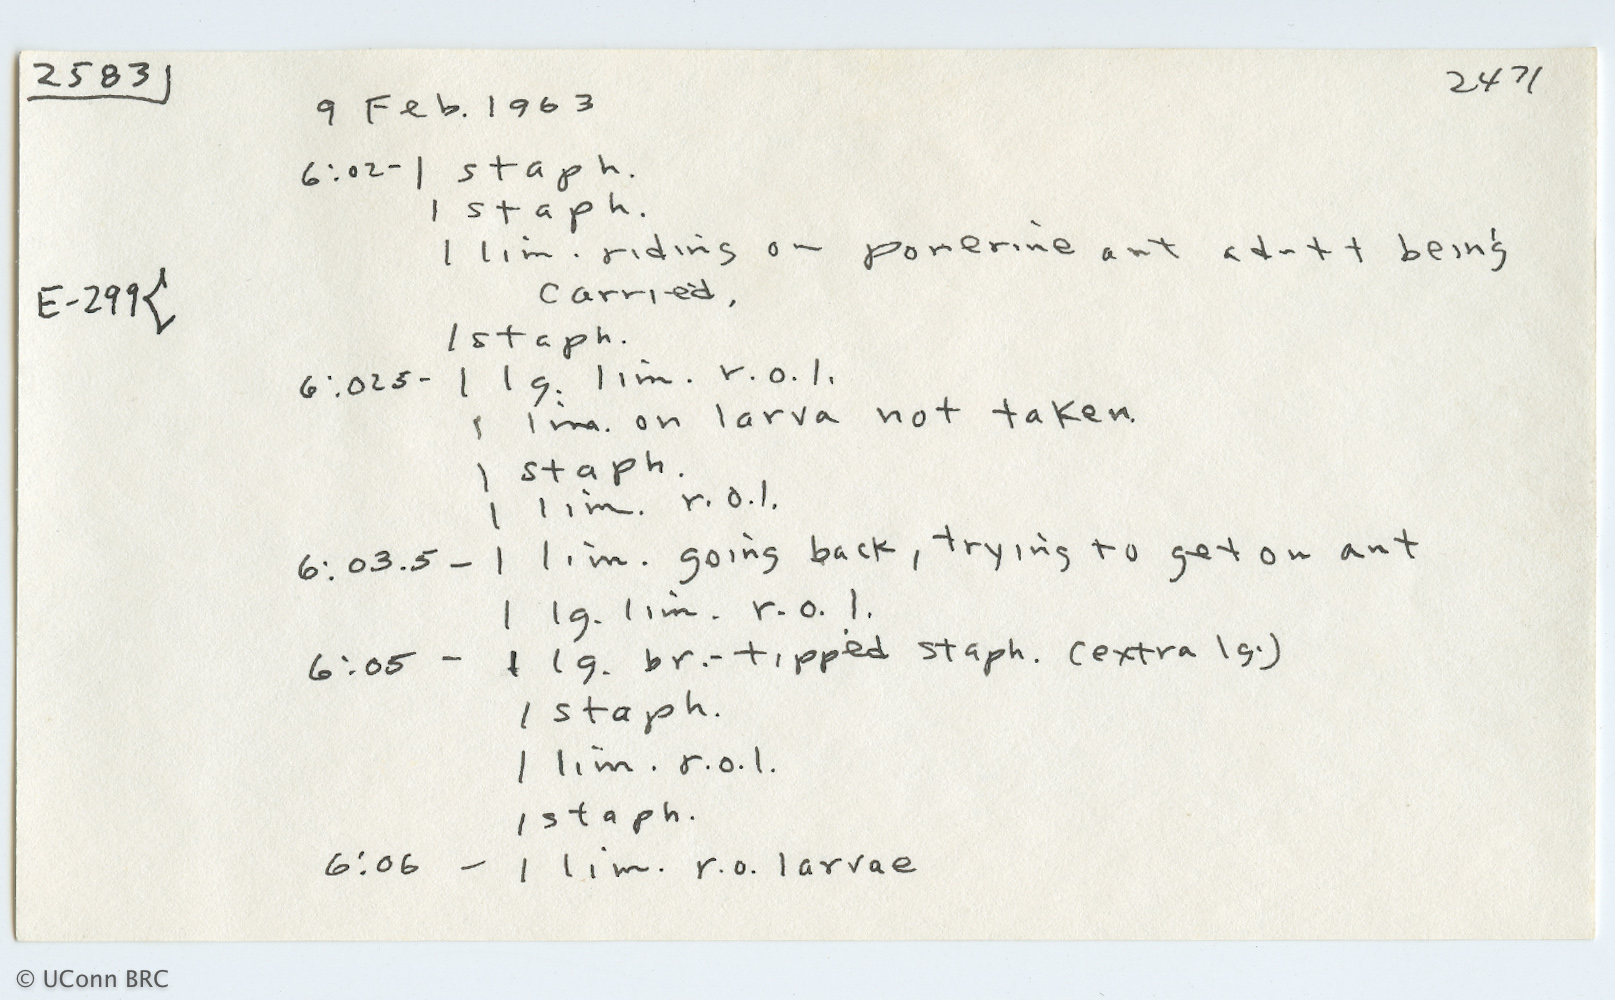 2583
2471
9 Feb. 1963
6:02-1 staph.
1 staph.
1 lim. riding on ponerine ant adult being
carried.
E-299{
1 staph.
6:025- 1 lg. lim. r.o.l.
1 lim. on larva not taken.
1 staph.
1 lim. r.o.l.
6:03.5 - 1 lim. going back, trying to get on ant
1 lg. lim. r.o.l.
6:05 - 1 lg. br.-tipped staph. (extra lg.)
1 staph.
1 lim. r.o.l.
1 staph.
6:06 - 1 lim. r.o. larvae
© UConn BRC